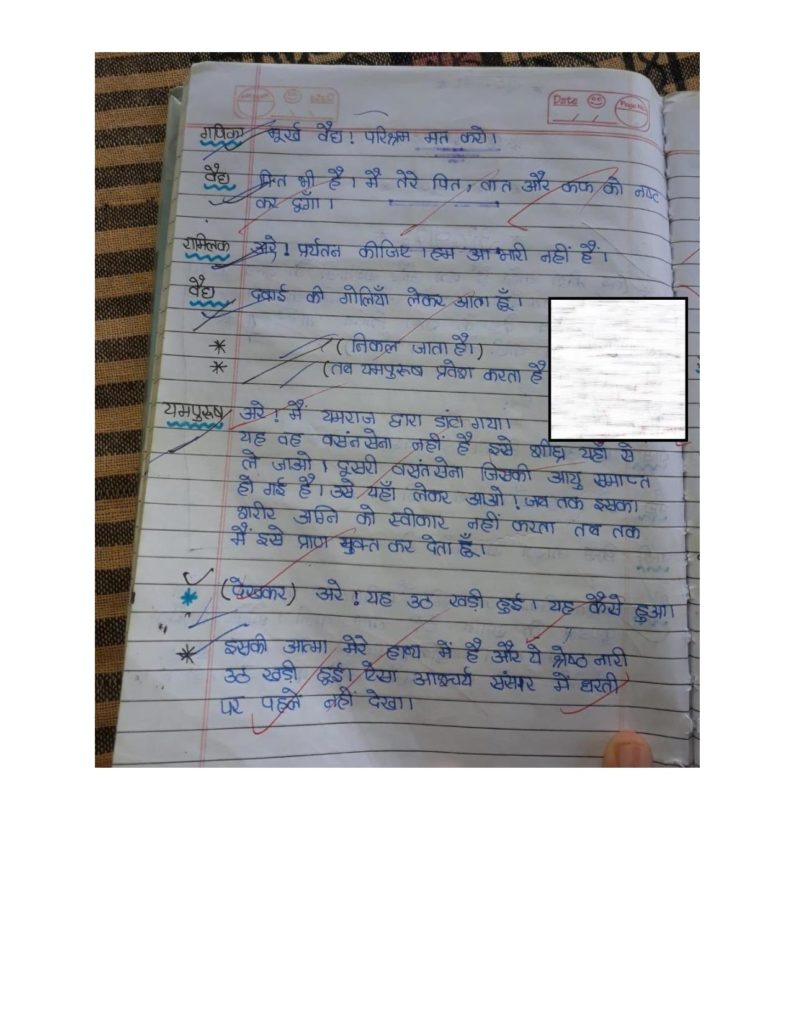 Date
Page No.
गणिका मूर्ख वैद्य! परिश्रम मत करो।
वैद्य पित्त भी है। मैं तेरे पित, वात और कफ को नष्ट
कर दूगाँ।
रामिलक अरे! प्रर्यतन कीजिए। हम आभारी नहीं हैं।
वैद्य दवाई की गोलियाँ लेकर आता हूँ।
* (निकल जाता है।)
* (तब यमपुरूष प्रवेश करता है
यमपुरूष अरे! मैं यमराज द्वारा डांटा गया।
यह वह वसंतसेना नहीं है इसे शीघ्र यहाँ से
ले जाओ। दूसरी वसंतसेना जिसकी आयु समाप्त
हो गई है। उसे यहाँ लेकर आओ। जब तक इसका
शरीर अग्नि को स्वीकार नहीं करता तब तक
मैं इसे प्राण युक्त कर देता हूँ।
* (देखकर) अरे! यह उठ खड़ी हुई। यह कैसे हुआ।
* इसकी आत्मा मेरे हाथ में है और ये श्रेष्ठ नारी
उठ खड़ी हुई। ऐसा आश्चर्य संसार में धरती
पर पहले नहीं देखा।